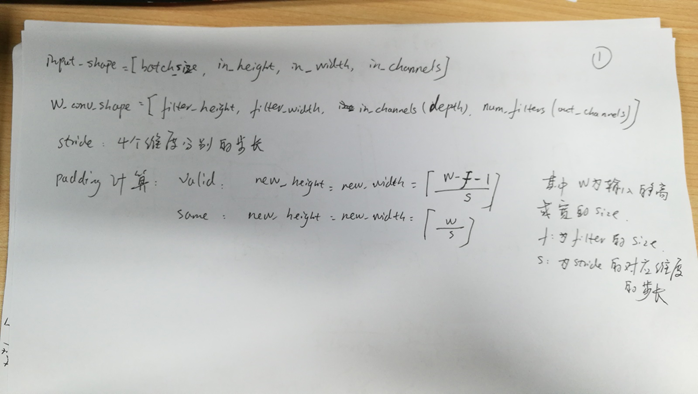 ①
input_shape = [batch_size, in_height, in_width, in_channels]
W_conv_shape = [filter_height, filter_width, in_channels(depth), num_filters(out_channels)]
stride: 4个维度分别的步长
padding计算: valid: new_height = new_width = ⌈(W-f-1)/S⌉
same: new_height = new_width = ⌈W/S⌉
其中W为输入的高
或宽的size.
f: 为filter的size.
S: 为stride的对应维度
的步长